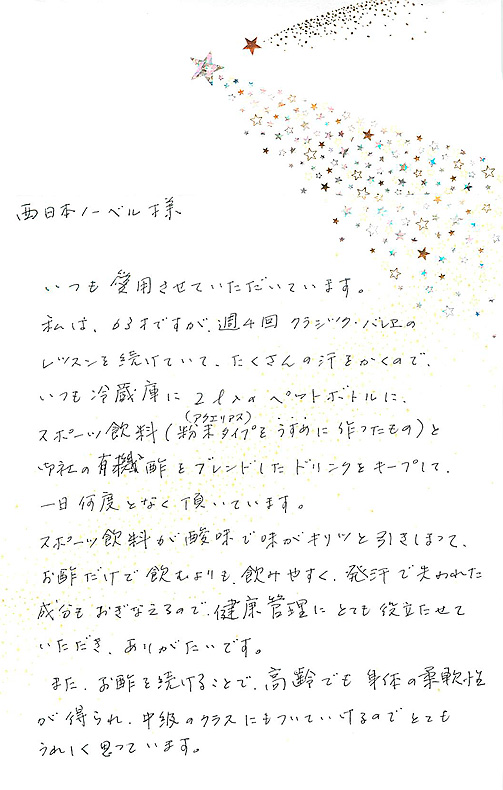 西日本ノーベル様
いつも愛用させていただいています。
私は、63才ですが、週4回 クラシック・バレエの
レッスンを続けていて、たくさんの汗をかくので、
いつも冷蔵庫に 2ℓ入の ペットボトルに、
スポーツ飲料(粉末タイプをうすめに作ったもの)と
(アクエリアス)
御社の有機酢をブレンドしたドリンクをキープして、
一日何度となく頂いています。
スポーツ飲料が酸味で味がキリッと引きしまって、
お酢だけで飲むよりも、飲みやすく、発汗で失われた
成分もおぎなえるので、健康管理にとても役立たせて
いただき、ありがたいです。
また、お酢を続けることで、高齢でも身体の柔軟性
が得られ、中級のクラスにもついていけるのでとても
うれしく思っています。